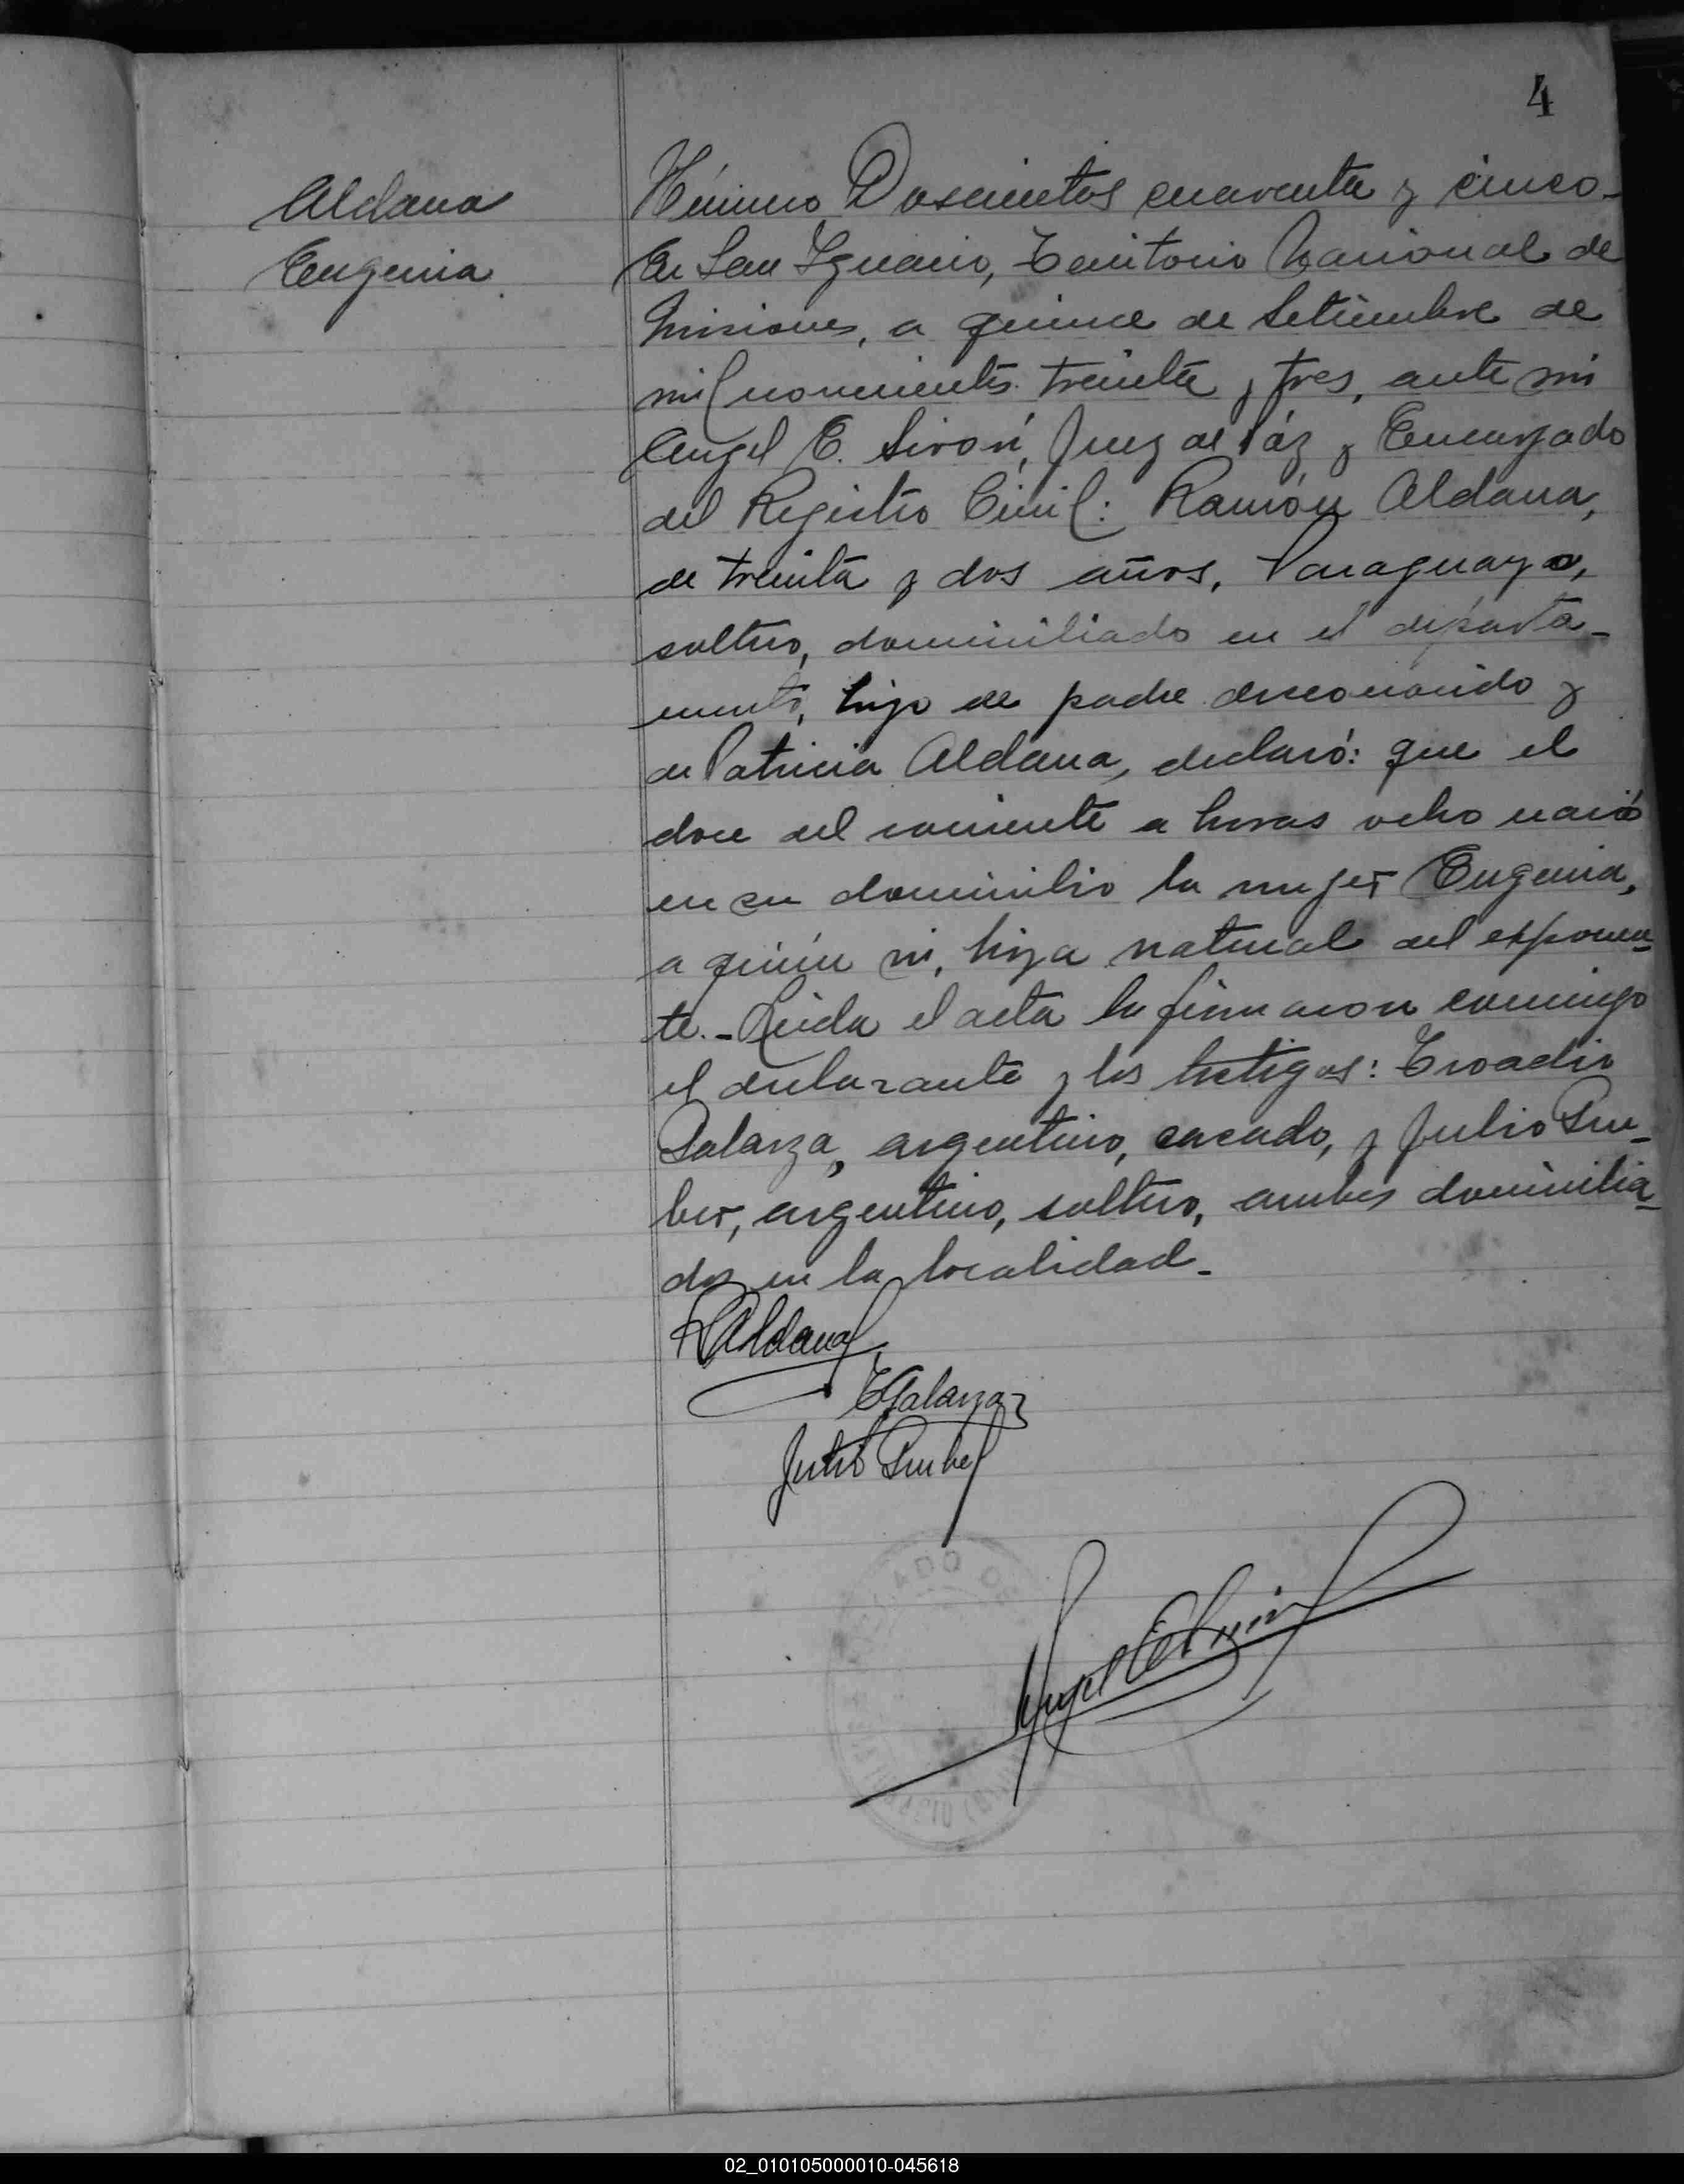 4
Aldana
Eugenia
Número Doscientos cuarenta y cinco-
En San Ygnacio, Territorio Nacional de
Misiones, a quince de Setiembre de
mil novecientos treinta y tres, ante mi
Angel E. Sironi, Juez de Páz y Encargado
del Registro Civil: Ramón Aldana,
de treinta y dos años, Paraguayo,
soltero, domiciliado en el departa-
mento, hijo de padre desconocido y
de Patricia Aldana, declaró: que el
doce del corriente a horas ocho nació
en su domicilio la mujer Eugenia,
a quien vi, hija natural del exponen-
te.- Leida el acta la firmaron conmigo
el declarante y los testigos: Troadio
Galarza, argentino, casado, y Julio
argentino, soltero, ambos domicilia-
dos en la localidad.-
RAldana
TGalarza
Julio
Angel E Sironi
02_010105000010-045618